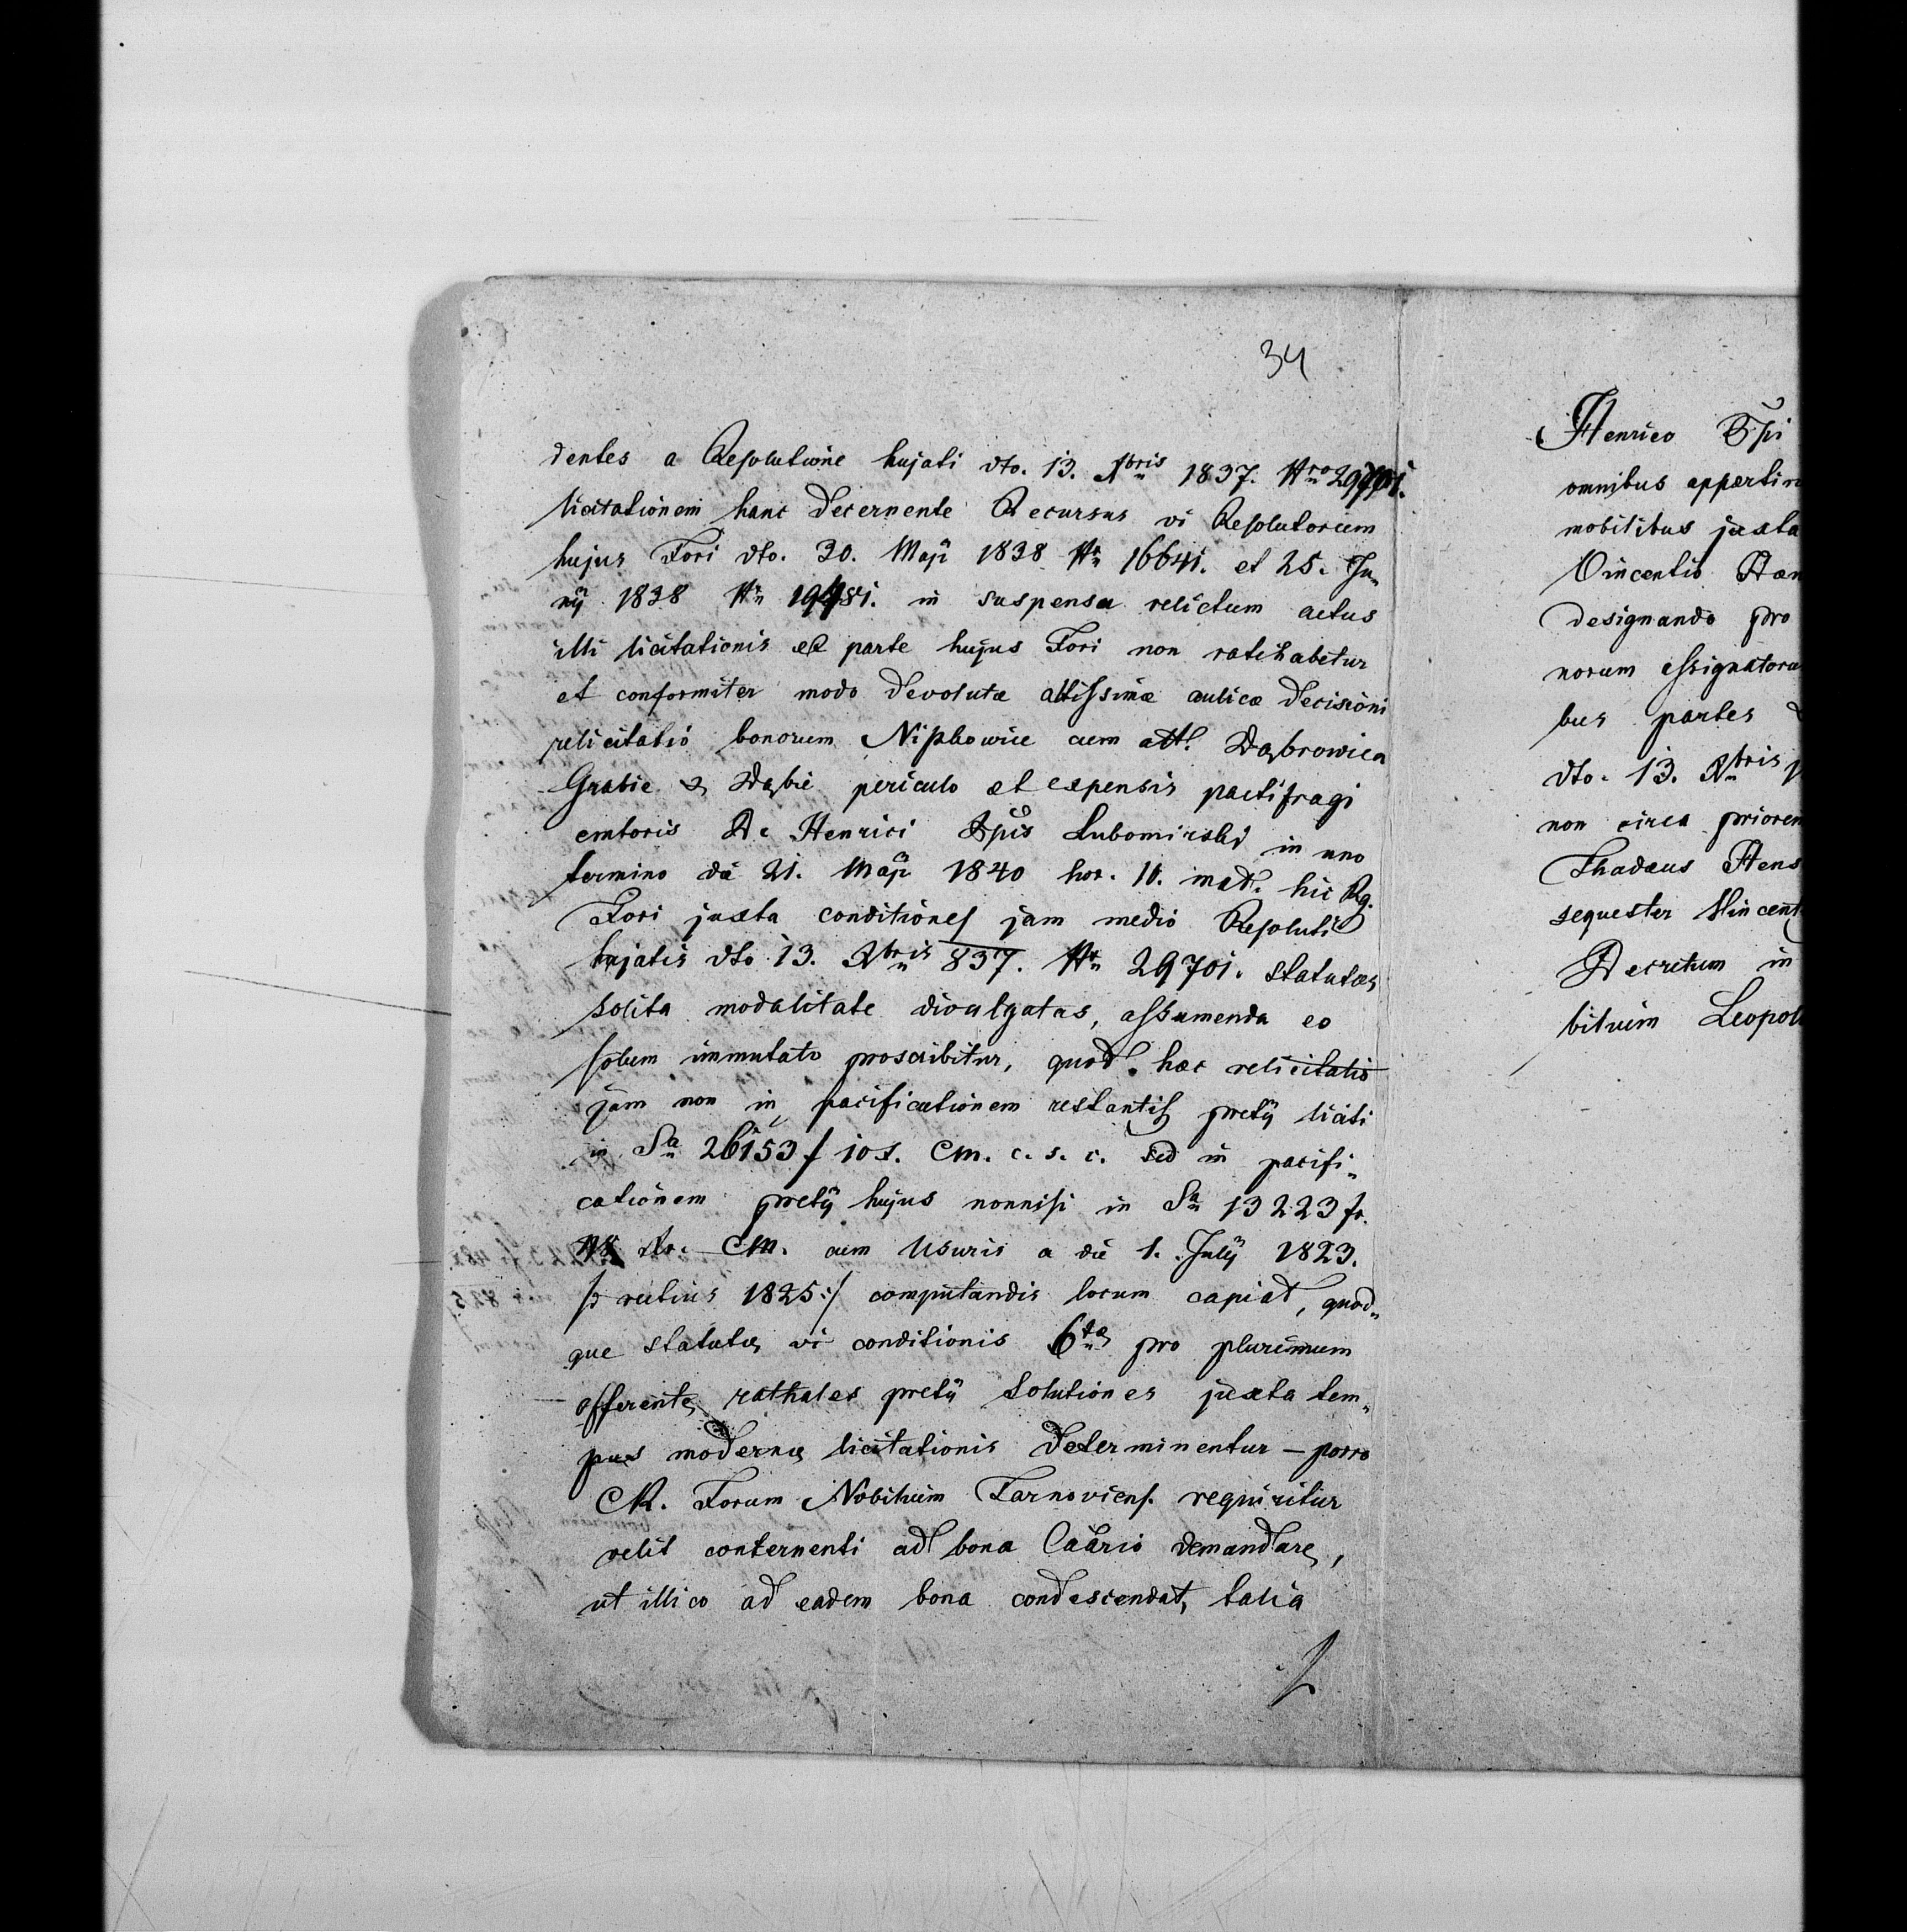 34
dentes a Resolutione hujati dto. 13. Xbris 1837. Nro 29701.
licitationem hanc decernente Recursus vi Resolutorum
hujus Fori dto. 30. Maji 1838 Nr 16641. et 25. Ju„
nij 1838 Nr 19481. in suspenso relictum actus
illi licitationis ex parte hujus Fori non ratihabetur
et conformiter modo devolutæ altissimæ aulicæ decisioni
relicitatio bonorum Nipkowice cum att. Dąbrowica
Grabie & Dąbie periculo et expensis pactifragi
emtoris D. Henrici Ppis Lubomirski in uno
termino die 21. Maji 1840 hor. 10. mat. hic Rg.
Fori juxta conditiones jam medio Resoluti
hujatis dto 13. Xbris 837. Nr 29701. statutas
solita modalitate divulgatas, assumenda eo
solum immutato proscribitur, quod hæc relicitatio
jam non in pacificationem restantis pretij liciti
in Sa 26153 f 10 x. CM. c. s. c. sed in pacifi„
cationem pretij hujus nonnisi in Sa 13223 fr.
48 Xr. CM. cum Usuris a die 1. Julij 1823.
/: rectius 1825 :/ computandis locum capiat, quod„
que statutæ vi conditionis 6tæ pro plurimum
offerente rathales pretij solutiones juxta tem„
pus modernæ licitationis determinentur – porro
CR. Forum Nobilium Tarnoviens. requiritur
velit concernenti ad bona Caario demandare,
ut illico ad eadem bona condescendat, talia
Henrico Ppi
omnibus appertin
mobilibus juxta
Vincentio
designando pro
norum assignatoru
bus partes
dto. 13. Xbris
non circa priorem
Thadæus Hens
sequester Vincent
Decretum in
bilium Leopol